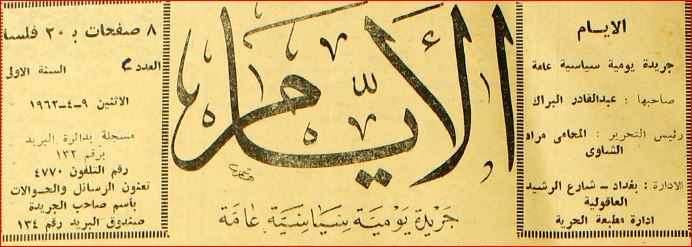 الايام
جريدة يومية سياسية عامة
صاحبها : عبدالقادر البراك
رئيس التحرير : المحامى مراد
الشاوى
الادارة : بغداد – شارع الرشيد
العاقولية
ادارة مطبعة الحرية
الأيام
جريدة يومية سياسية عامة
٨ صفحات بـ ٢٠ فلسا
العدد
السنة الاولى
الاثنين ٩–٤–١٩٦٢
مسجلة بدائرة البريد
برقم ١٣٢
رقم التلفون ٤٧٧٠
تعنون الرسائل والحوالات
بأسم صاحب الجريدة
صندوق البريد رقم ١٣٤